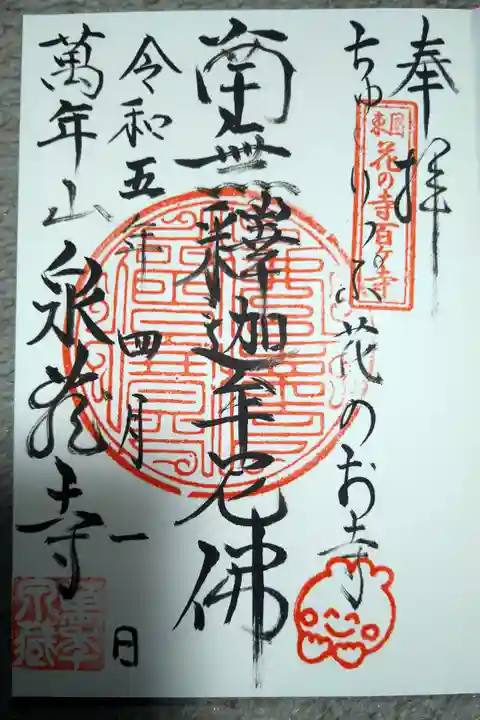 奉拝
東国花の寺百ケ寺
ちゅーりっぷ花のお寺
南無釋迦牟尼佛
令和五年四月一日
萬年山泉龍寺